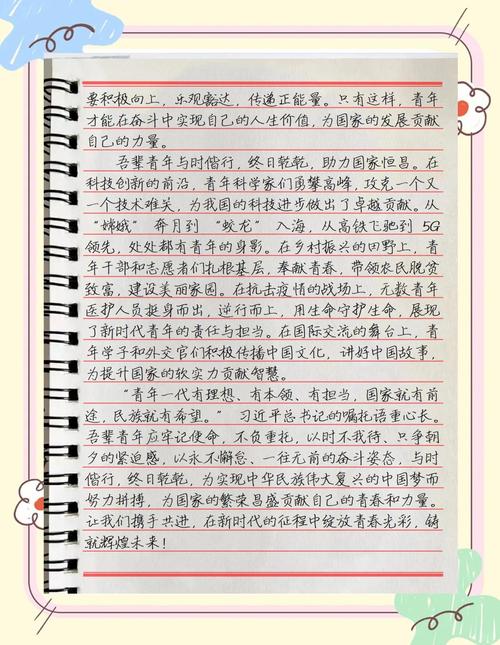 要积极向上，乐观豁达，传递正能量。只有这样，青年
才能在奋斗中实现自己的人生价值，为国家的发展贡献
自己的力量。
吾辈青年与时偕行，终日乾乾，助力国家恒昌。在
科技创新的前沿，青年科学家们勇攀高峰，攻克一个又
一个技术难关，为我国的科技进步做出了卓越贡献。从
“嫦娥” 奔月到 “蛟龙” 入海，从高铁飞驰到 5G
领先，处处都有青年的身影。在乡村振兴的田野上，青
年干部和志愿者们扎根基层，奉献青春，带领农民脱贫
致富，建设美丽家园。在抗击疫情的战场上，无数青年
医护人员挺身而出，逆行而上，用生命守护生命，展现
了新时代青年的责任与担当。在国际交流的舞台上，青
年学子和外交官们积极传播中国文化，讲好中国故事，
为提升国家的软实力贡献智慧。
“青年一代有理想、有本领、有担当，国家就有前
途，民族就有希望。” 习近平总书记的嘱托语重心长。
吾辈青年应牢记使命，不负重托，以时不我待、只争朝
夕的紧迫感，以永不懈怠、一往无前的奋斗姿态，与时
偕行，终日乾乾，为实现中华民族伟大复兴的中国梦而
努力拼搏，为国家的繁荣昌盛贡献自己的青春和力量。
让我们携手共进，在新时代的征程中绽放青春光彩，铸
就辉煌未来！